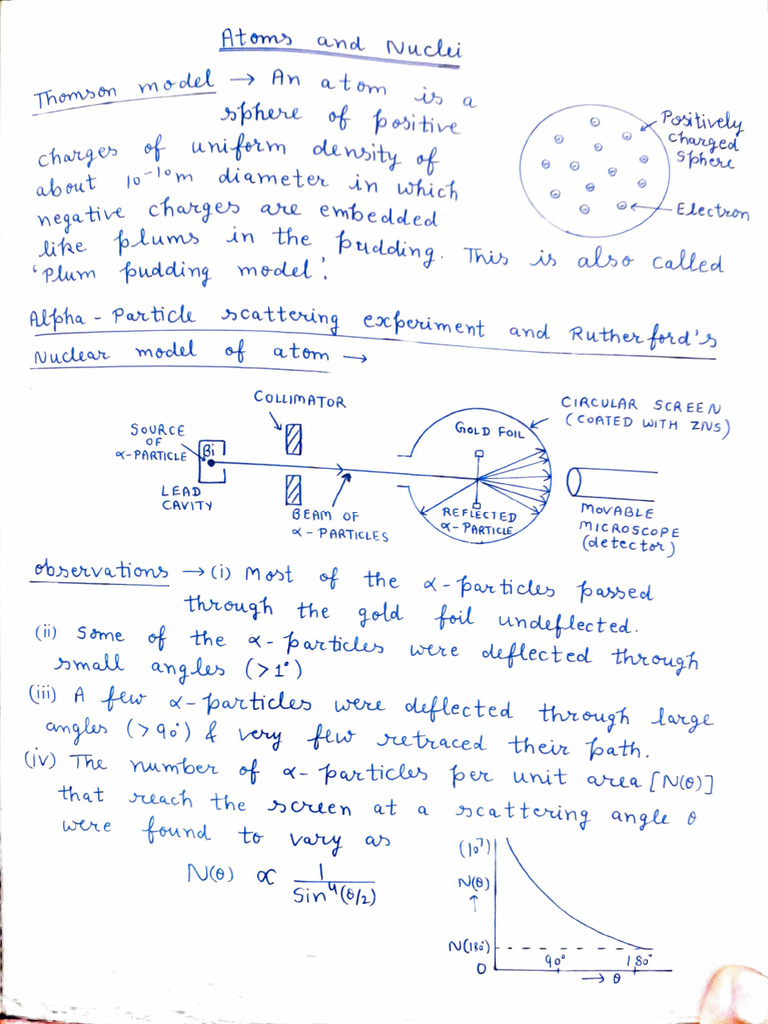 Atoms and Nuclei
Thomson model → An atom is a
sphere of positive
charges of uniform density of
about 10⁻¹⁰m diameter in which
negative charges are embedded
like plums in the pudding. This is also called
'Plum pudding model'.
Positively
charged
sphere
Electron
Alpha - Particle scattering experiment and Rutherford's
Nuclear model of atom →
COLLIMATOR
SOURCE
OF
α-PARTICLE
Bi
LEAD
CAVITY
BEAM OF
α-PARTICLES
GOLD FOIL
REFLECTED
α-PARTICLE
CIRCULAR SCREEN
(COATED WITH ZNS)
MOVABLE
MICROSCOPE
(detector)
observations → (i) Most of the α-particles passed
through the gold foil undeflected.
(ii) Some of the α-particles were deflected through
small angles (>1°)
(iii) A few α-particles were deflected through large
angles (>90°) & very few retraced their path.
(iv) The number of α-particles per unit area [N(θ)]
that reach the screen at a scattering angle θ
were found to vary as
N(θ) ∝ 1/Sin⁴(θ/2)
(10⁷)
N(θ)
↑
N(180°)
0
90°
180°
→ θ